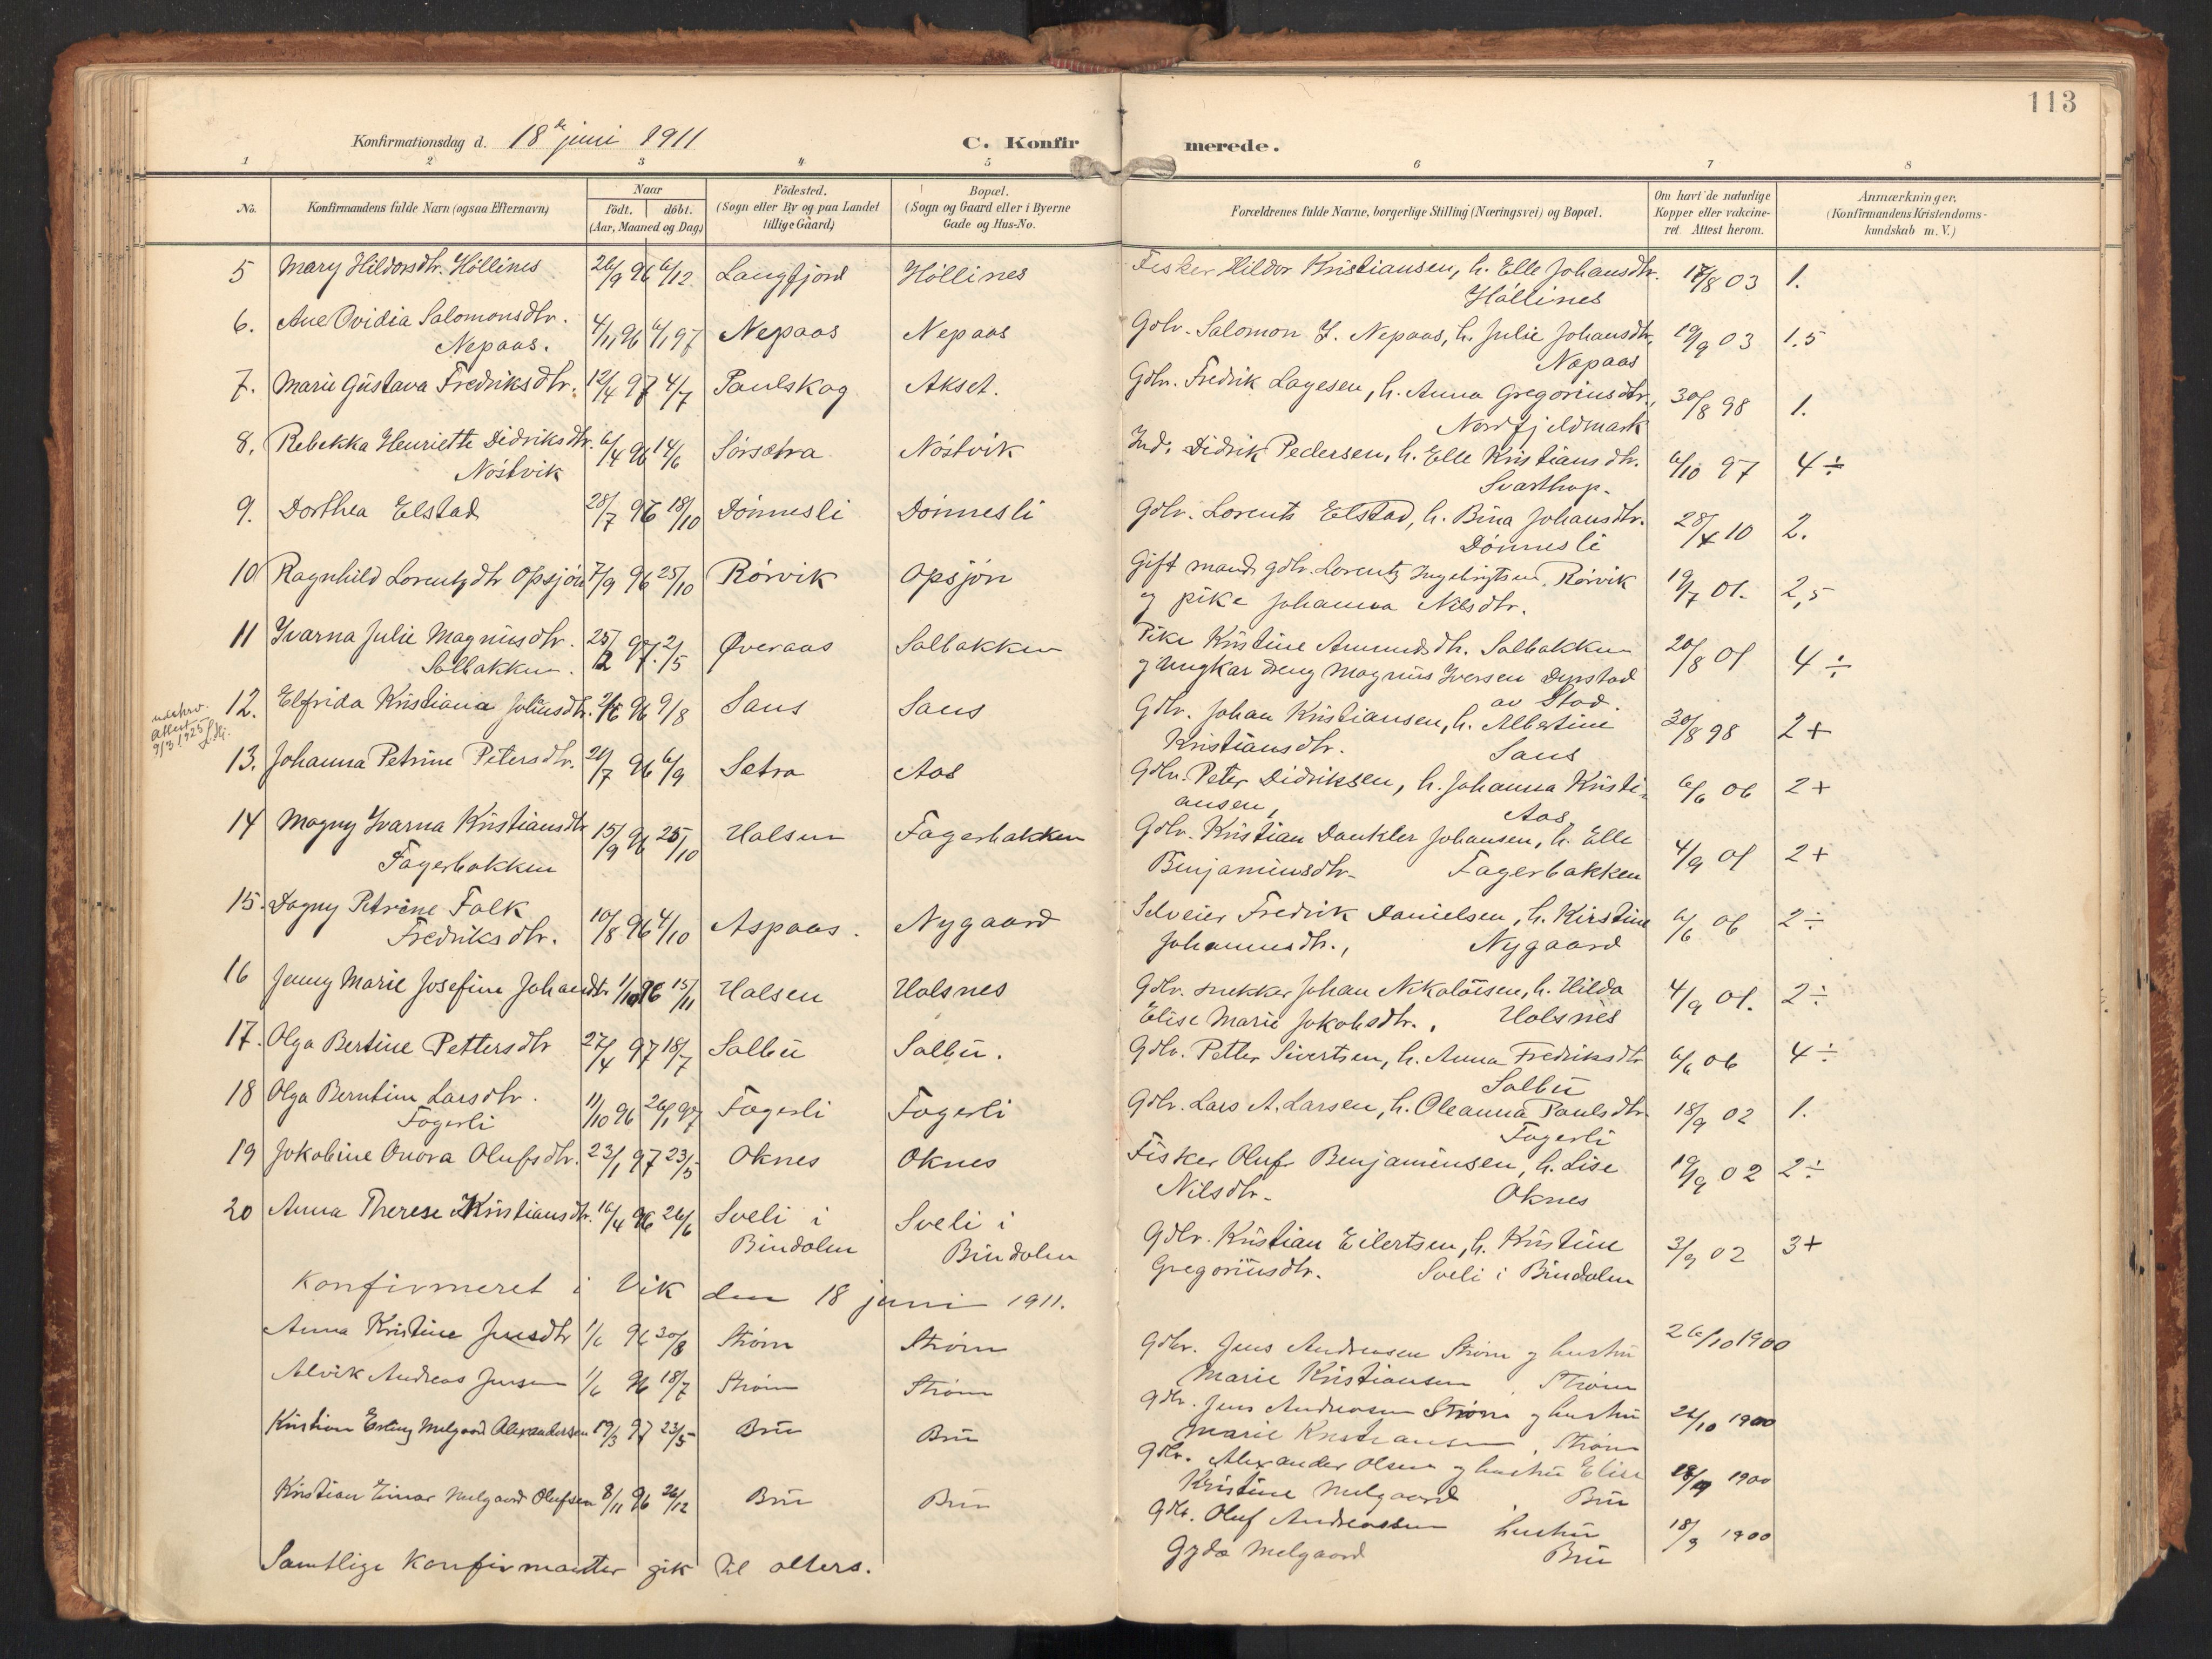 113
Konfirmationsdag d. 18de juni 1911
C. Konfirmerede.
1 2 3 4 5 6 7 8
No.
Konfirmandens fulde Navn (ogsaa Efternavn)
Naar
født. døbt.
(Aar, Maaned og Dag)
Fødested.
(Sogn eller By og paa Landet
tillige Gaard)
Bopæl.
(Sogn og Gaard eller i Byerne
Gade og Hus-No.
Forældrenes fulde Navne, borgerlige Stilling (Næringsvei) og Bopæl.
Om havt de naturlige
Kopper eller vakcine-
ret. Attest herom.
Anmærkninger,
(Konfirmandens Kristendoms-
kundskab m. V.)
5 Mary Hildorsdtr. Höllines 26/9 96 6/12 Langfjord Höllines Fisker Hildor Kristiansen, h. Elle Johansdtr. 17/8 03 1.
Höllines
6. Ane Ovidia Salomonsdtr. 4/11 96 6/1 97 Nepaas Nepaas Gdbr. Salomon J. Nepaas, h. Julie Johansdtr, 19/9 03 1.5
Nepaas. Nepaas
7. Marie Gustava Fredriksdtr. 12/4 97 4/7 Paulskog Akset. Gdbr. Fredrik Lagesen, h. Anna Gregoriusdtr., 30/8 98 1.
Nordfjeldmark
8. Rebekka Henriette Didriksdtr. 6/4 96 14/6 Sörsetra Nöstvik Ind. Didrik Pedersen, h. Elle Kristiansdtr. 6/10 97 4 ÷
Nöstvik Svarthop.
9. Dorthea Elstad 28/7 96 18/10 Dönnesli Dönnesli Gdbr. Lorents Elstad, h. Bina Johansdtr. 28/4 10 2.
Dönnesli
10 Ragnhild Lorentzdtr Opsjön 7/9 96 25/10 Rörvik Opsjön Gift mand gdbr. Lorentz Ingebrigtsen, Rörvik 19/7 01. 2,5
og pike Johanna Nilsdtr.
11 Ivarna Julie Magnusdtr. 25/12 97. 2/5 Øveraas Salbakken Pike Kristine Amundsdtr. Salbakken 20/8 01 4 ÷
Salbakken. og Ungkar dreng Magnus Iversen Dypstad
av Stod.
12. Elfrida Kristiana Joliusdtr. 2/6 96 9/8 Saus Saus Gdbr. Johan Kristiansen, h. Albertine 30/8 98 2 +
attest
9/3 1925
Kristiansdtr. Saus
13. Johanna Petrine Petersdtr. 21/7 96 6/9 Setra Aas Gdbr. Peter Didriksen, h. Johanna Kristi- 6/6 06 2 +
ansen, Aas
14 Magny Ivarna Kristiansdtr 15/9 96 25/10 Halsen Fagerbakken Gdbr. Kristian Dankler Johansen, h. Elle 4/9 01 2 +
Fagerbakken Benjaminsdtr. Fagerbakken
15. Dagny Petrine Falk 10/8 96 4/10 Aspaas. Nygaard Selveier Fredrik Danielsen, h. Kirstine 6/6 06 2 ÷
Fredriksdtr. Johannesdtr., Nygaard
16 Jenny Marie Josefine Johansdtr 1/10 96 15/11 Halsen Halsnes Gdbr. snekker Johan Nikolaisen, h. Hilda 4/9 01. 2 ÷
Elise Marie Jakobsdtr., Halsnes
17. Olga Bertine Pettersdtr 27/4 97 18/7 Salbu Salbu. Gdbr. Petter Sivertsen, h. Anna Fredriksdtr 6/6 06 4 ÷
Salbu
18 Olga Berntine Larsdtr. 11/10 96 26/1 97 Fagerli Fagerli Gdbr. Lars A. Larsen, h. Oleanna Paulsdtr. 18/9 02 1.
Fagerli Fagerli
19 Jokobine Onora Olufsdtr. 23/1 97 23/5 Oknes Oknes Fisker Oluf Benjaminsen, h. Lise 19/9 02 2 ÷
Nilsdtr. Oknes
20 Anna Therese Kristiansdtr. 16/4 96 26/6 Sveli i Sveli i Gdbr. Kristian Eilertsen, h. Kristine 3/9 02 3 +
Bindalen Bindalen Gregoriusdtr. Sveli i Bindalen
Konfirmeret i Vik den 18 juni 1911.
Anna Kristine Jensdtr 1/6 96 30/8 Strøm Strøm Gdbr. Jens Andreasen Strøm og hustru 26/10 1900
Marie Kristiansen, Strøm
Alvik Andreas Jensen 1/6 96 18/7 Strøm Strøm Gdbr. Jens Andreasen Strøm og hustru 26/10 1900
Marie Kristiansen, Strøm
Kristian Erling Melgaard Alexandersen 19/3 97 23/5 Bru Bru Gdbr. Alexander Olsen og hustru Elise 18/9 1900
Kristine Melgaard, Bru
Kristian Einar Melgaard Olufsen 8/11 96 26/12 Bru Bru Gdbr. Oluf Andreassen hustru 18/9 1900
Gyda Melgaard Bru
Samtlige konfirmanter gik til alters.